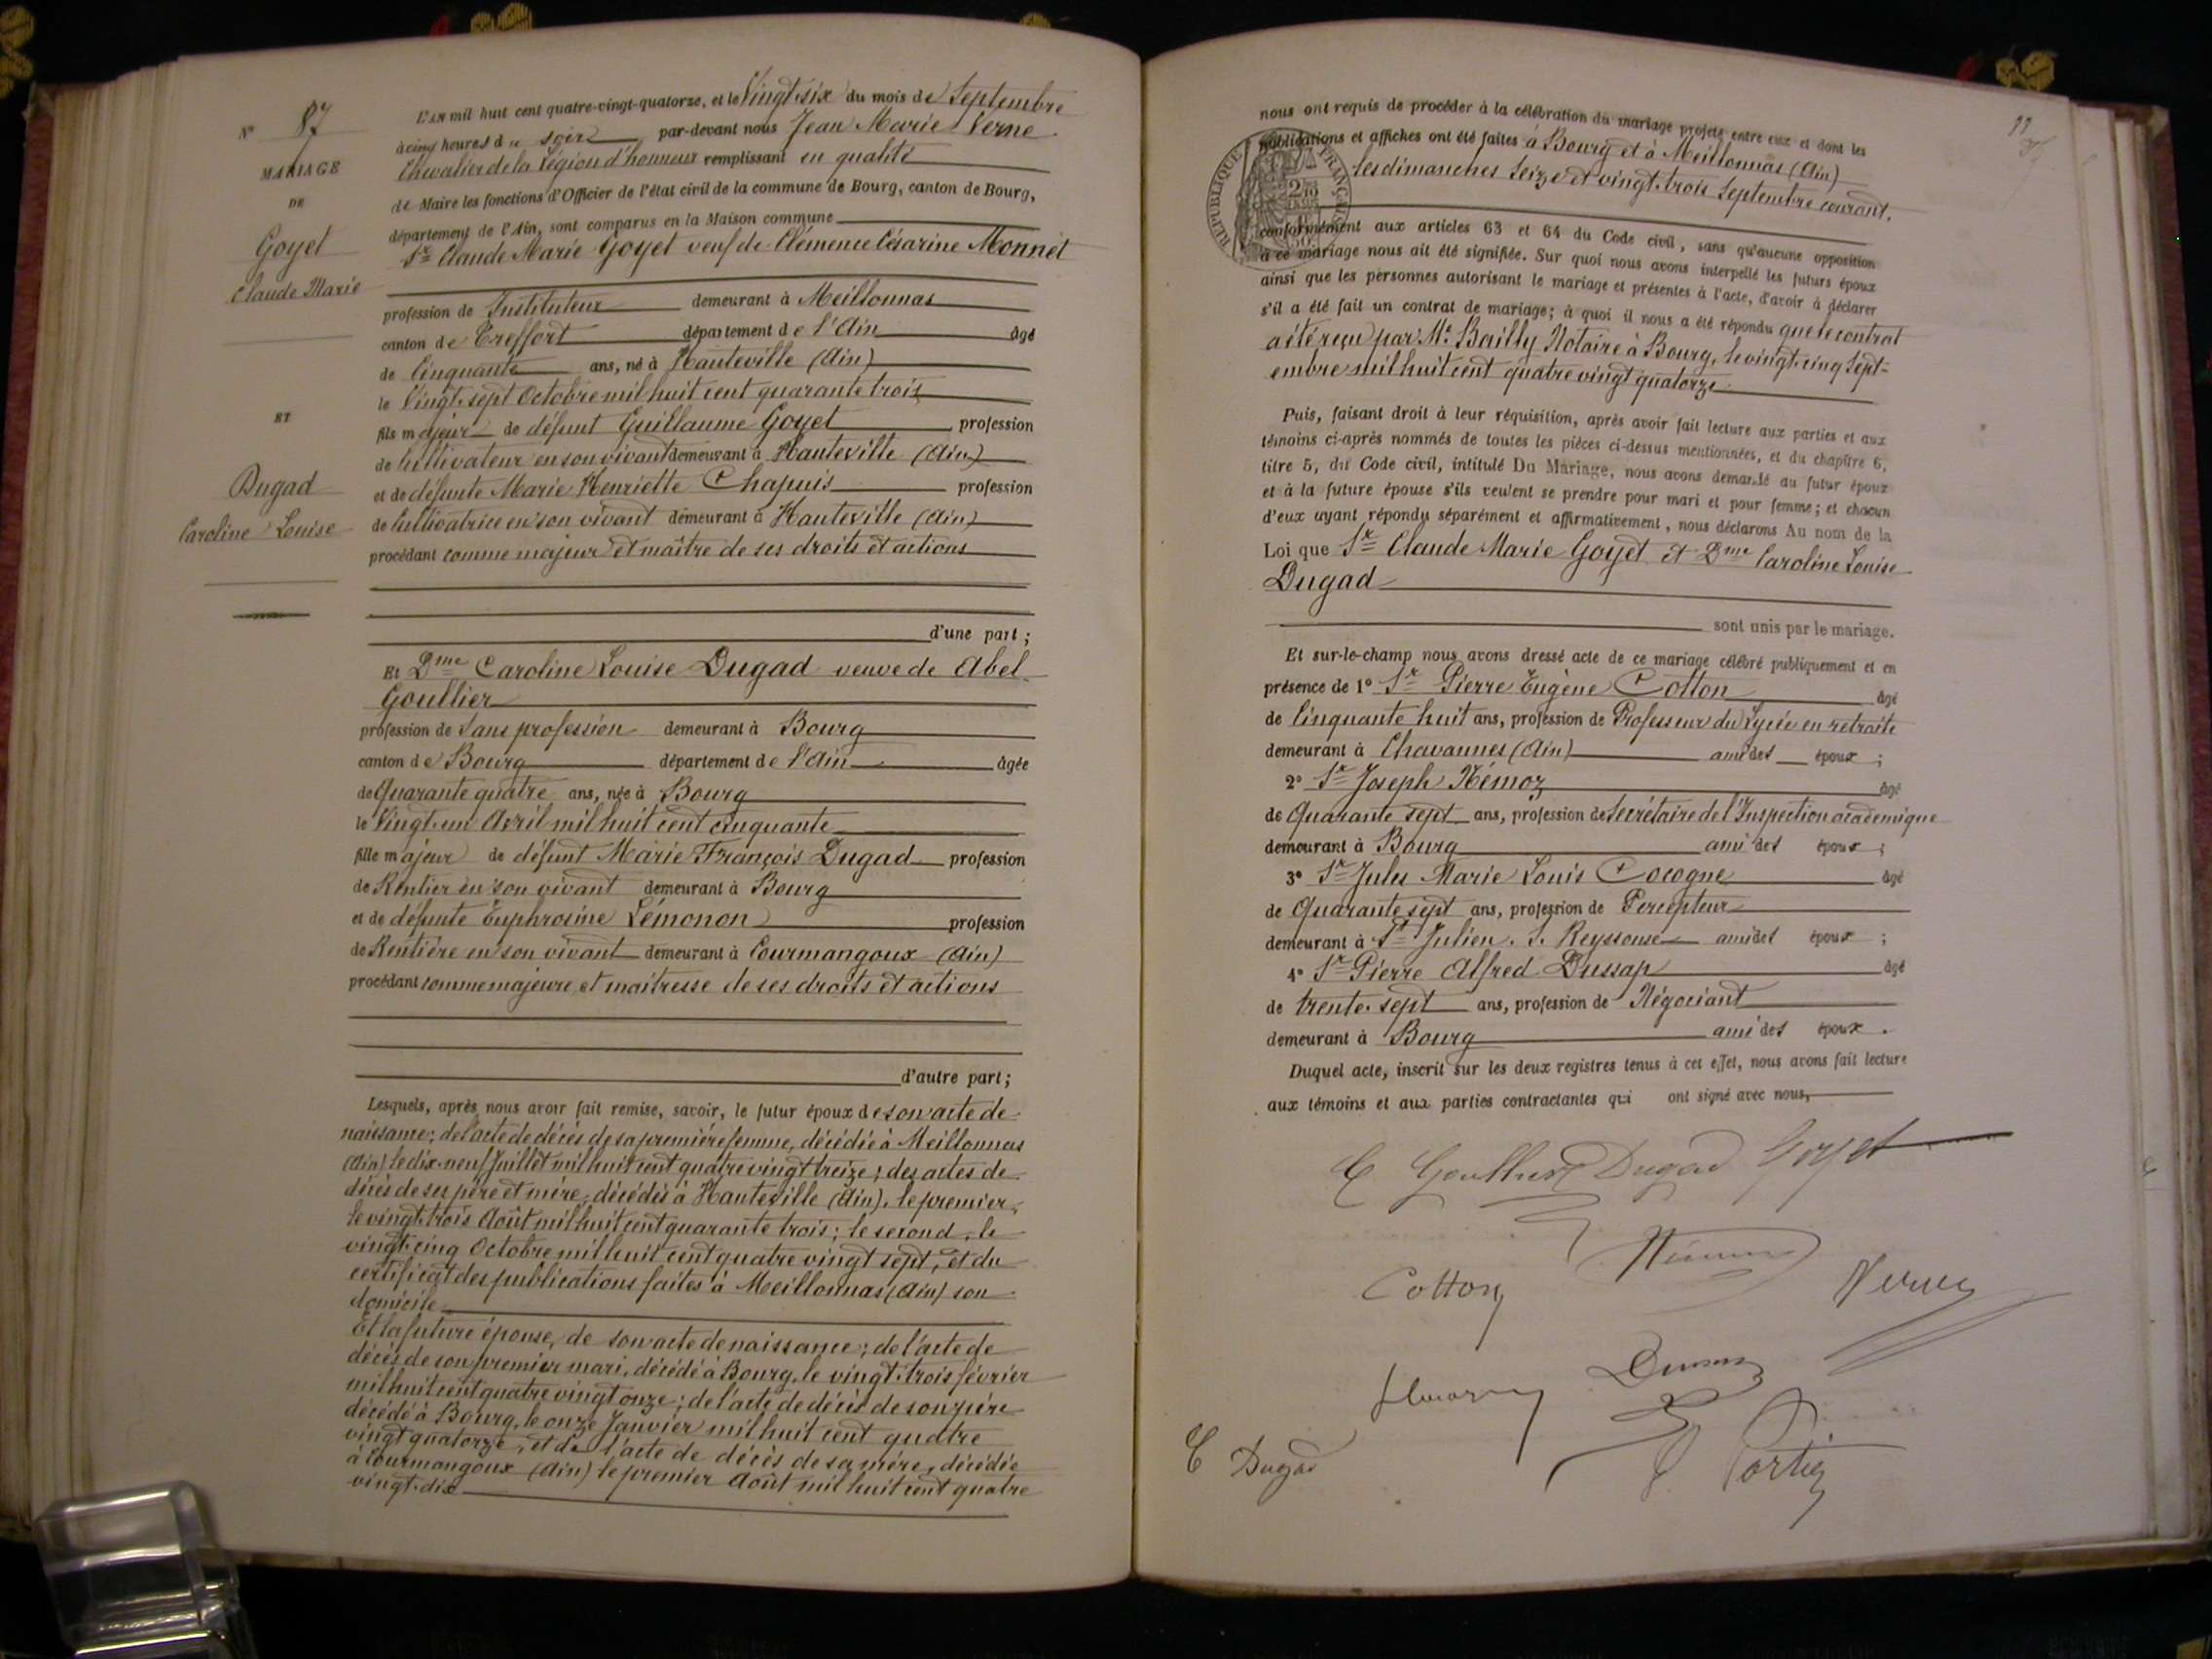 N° 87
MARIAGE
DE
Goyet
Claude Marie
ET
Dugad
Caroline Louise
L'AN mil huit cent quatre-vingt-quatorze, et le Vingt-six du mois de Septembre
à cinq heures du soir par-devant nous Jean Marie Verne
Chevalier de la Légion d'honneur remplissant en qualité
de Maire les fonctions d'Officier de l'état civil de la commune de Bourg, canton de Bourg,
département de l'Ain, sont comparus en la Maison commune
Sr Claude Marie Goyet veuf de Clémence Césarine Monnet
profession de Instituteur demeurant à Meillonnas
canton de Treffort département de l'Ain âgé
de Cinquante ans, né à Hauteville (Ain)
le Vingt-sept Octobre mil huit cent quarante trois
fils majeur de défunt Guillaume Goyet profession
de Cultivateur en son vivant demeurant à Hauteville (Ain)
et de défunte Marie Henriette Chapuis profession
de Cultivatrice en son vivant demeurant à Hauteville (Ain)
procédant comme majeur et maître de ses droits et actions
d'une part ;
Et Dme Caroline Louise Dugad veuve de Abel
Goullier
profession de Sans profession demeurant à Bourg
canton de Bourg département de l'Ain âgée
de Quarante quatre ans, née à Bourg
le Vingt-un Avril mil huit cent cinquante
fille majeur de défunt Marie François Dugad profession
de Rentier en son vivant demeurant à Bourg
et de défunte Euphrosine Lémonon profession
de Rentière en son vivant demeurant à Courmangoux (Ain)
procédant comme majeure et maîtresse de ses droits et actions
d'autre part ;
Lesquels, après nous avoir fait remise, savoir, le futur époux de son acte de
naissance; de l'acte de décès de sa première femme, décédée à Meillonnas
(Ain) le dix-neuf Juillet mil huit cent quatre vingt treize; des actes de
décès de ses père et mère, décédés à Hauteville (Ain), le premier,
le vingt-trois Août mil huit cent quarante trois; le second, le
vingt-cinq Octobre mil huit cent quatre vingt sept, et du
certificat des publications faites à Meillonnas (Ain) son
domicile
Et la future épouse, de son acte de naissance; de l'acte de
décès de son premier mari, décédé à Bourg, le vingt-trois février
mil huit cent quatre vingt onze; de l'acte de décès de son père
décédé à Bourg, le onze Janvier mil huit cent quatre
vingt quatorze, et de l'acte de décès de sa mère, décédée
à Courmangoux (Ain) le premier Août mil huit cent quatre
vingt-dix
nous ont requis de procéder à la célébration du mariage projeté entre eux et dont les
publications et affiches ont été faites à Bourg et à Meillonnas (Ain)
les dimanches Seize et vingt-trois Septembre courant.
REPUBLIQUE FRANÇAISE
conformément aux articles 63 et 64 du Code civil, sans qu'aucune opposition
à ce mariage nous ait été signifiée. Sur quoi nous avons interpellé les futurs époux
ainsi que les personnes autorisant le mariage et présentes à l'acte, d'avoir à déclarer
s'il a été fait un contrat de mariage ; à quoi il nous a été répondu que le contrat
a été reçu par Me Bailly Notaire à Bourg, le vingt-cinq Sept-
embre mil huit cent quatre vingt quatorze
Puis, faisant droit à leur réquisition, après avoir fait lecture aux parties et aux
témoins ci-après nommés de toutes les pièces ci-dessus mentionnées, et du chapitre 6,
titre 5, du Code civil, intitulé Du Mariage, nous avons demandé au futur époux
et à la future épouse s'ils veulent se prendre pour mari et pour femme ; et chacun
d'eux ayant répondu séparément et affirmativement, nous déclarons Au nom de la
Loi que Sr Claude Marie Goyet et Dme Caroline Louise
Dugad
sont unis par le mariage.
Et sur-le-champ nous avons dressé acte de ce mariage célébré publiquement et en
présence de 1° Sr Pierre Eugène Cotton âgé
de Cinquante huit ans, profession de Professeur du Lycée en retraite
demeurant à Chavannes (Ain) ami des époux ;
2° Sr Joseph Némoz âgé
de Quarante sept ans, profession de Secrétaire de l'Inspection académique
demeurant à Bourg ami des époux ;
3° Sr Jules Marie Louis Cocogne âgé
de Quarante sept ans, profession de Percepteur
demeurant à St Julien. S. Reyssouse ami des époux ;
4° Sr Pierre Alfred Dussap âgé
de trente-sept ans, profession de Négociant
demeurant à Bourg ami des époux.
Duquel acte, inscrit sur les deux registres tenus à cet effet, nous avons fait lecture
aux témoins et aux parties contractantes qui ont signé avec nous,
C Goullier Dugad Goyet
Cotton Verne
C Dugad